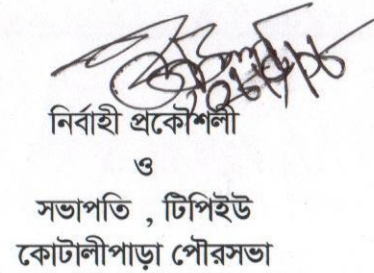 নির্বাহী প্রকৌশলী
ও
সভাপতি , টিপিইউ
কোটালীপাড়া পৌরসভা